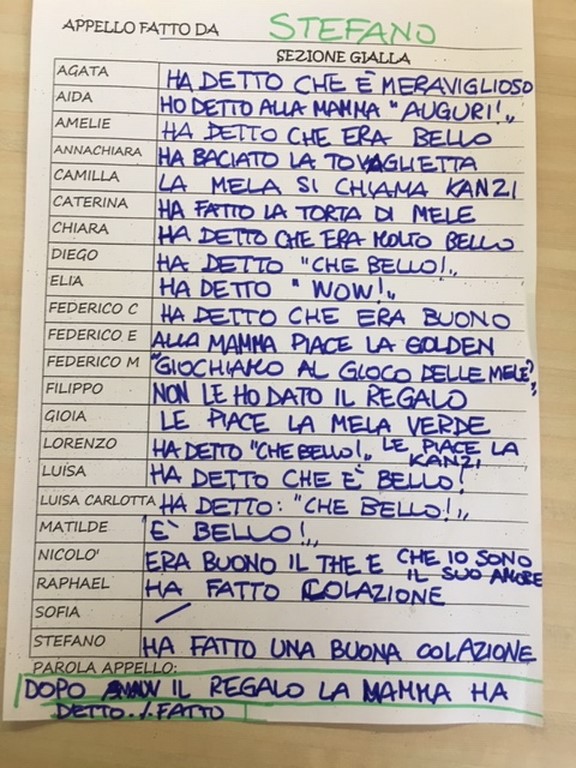 APPELLO FATTO DA STEFANO
SEZIONE GIALLA
AGATA HA DETTO CHE È MERAVIGLIOSO
AIDA HO DETTO ALLA MAMMA "AUGURI!"
AMELIE HA DETTO CHE ERA BELLO
ANNACHIARA HA BACIATO LA TOVAGLIETTA
CAMILLA LA MELA SI CHIAMA KANZI
CATERINA HA FATTO LA TORTA DI MELE
CHIARA HA DETTO CHE ERA MOLTO BELLO
DIEGO HA DETTO "CHE BELLO!"
ELIA HA DETTO "WOW!"
FEDERICO C HA DETTO CHE ERA BUONO
FEDERICO E ALLA MAMMA PIACE LA GOLDEN
FEDERICO M "GIOCHIAMO AL GIOCO DELLE MELE?"
FILIPPO NON LE HO DATO IL REGALO
GIOIA LE PIACE LA MELA VERDE
LORENZO HA DETTO "CHE BELLO!" LE PIACE LA
KANZI
LUISA HA DETTO CHE E' BELLO!
LUISA CARLOTTA HA DETTO: "CHE BELLO!"
MATILDE "E' BELLO!"
NICOLO' ERA BUONO IL THE E CHE IO SONO
IL SUO AMORE
RAPHAEL HA FATTO COLAZIONE
SOFIA /
STEFANO HA FATTO UNA BUONA COLAZIONE
PAROLA APPELLO:
DOPO IL REGALO LA MAMMA HA
DETTO./FATTO